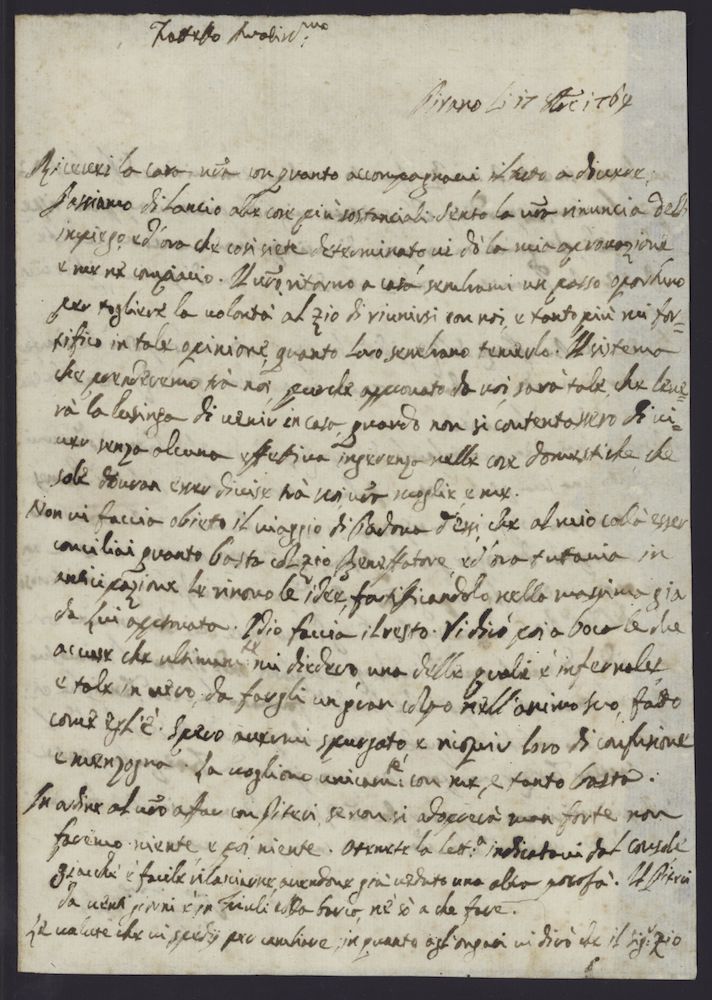 Fratello
Pirano li 17 1764
Ricevei la cara vr̃a con quanto accompagnavi il tutto a dovere,
Passiamo di lancio alle cose più sostanziali. Sento la vr̃a rinuncia dell'
impiego, ed'ora che cosi siete determinato vi dò la mia aprovazione
e me ne compiacio. Il vr̃o ritorno a casa sembrami un passo oportuno
per togliere la volontà al Zio di riunirsi con noi, e tanto più mi for=
tifico in tale opinione, quanto loro sembrano temerlo. Il sistema
che prenderemo trà noi, purche approvato da voi sarà tale, che leve=
rà la lusinga di venir in casa, quando non si contentassero di vi=
ver senza alcuna effettiva ingerenza nelle cose domestiche, che
sole dovran esser divise trà voi vr̃a moglie, e me.
Non vi faccia obieto il viaggio di Padova d'essi, che al mio colà esser
conciliai quanto basta col Zio Benefattore, ed'ora tuttavia in
anticipazione le rinovo le idee, fortificandolo nella massima già
da lui approvata. Idio faccia il resto. Vi dirò poi a boca le due
accuse che ultimam:te mi diedero una delle quali è infernale,
e tale in vero, da fargli un gran colpo nell'animo suo, fatto
come egl'è. Spero avermi spurgato e riopir loro di confusione
e menzogna. La vogliono unicam:te con me, e tanto basta.
In ordine al vr̃o affar con Piteri, se non si adoprerà man forte non
faremo niente e poi niente. Otenete la lett:a indicatavi dal Console
giacchè è facile rilasciarne, avendone già veduto una altra . Il Piteri
da venti giorni è in Friuli colla barca, ne sò a che fare.
Le valute che vi spedij per cambiare, in quanto agl'ongari vi dirò che il sig:r Zio